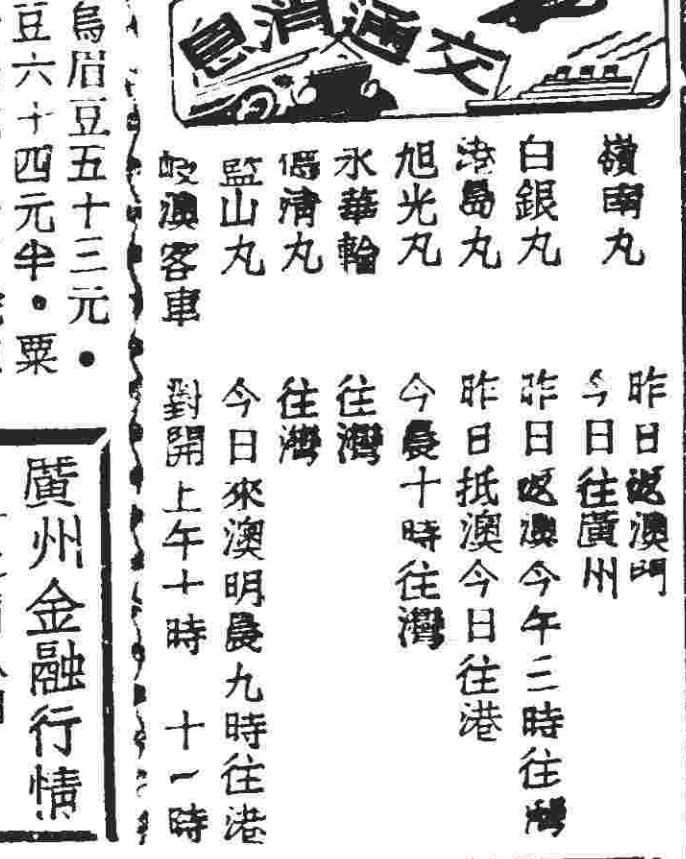 交通消息
嶺南丸
昨日返澳門
今日往廣州
白銀丸
昨日返澳今午三時往灣
港島丸
昨日抵澳今日往港
旭光丸
今晨十時往灣
永華輪
往灣
清丸
往灣
監山丸
今日來澳明晨九時往港
岐澳客車
對開上午十時 十一時
烏眉豆五十三元。
豆六十四元半。粟
廣州金融行情